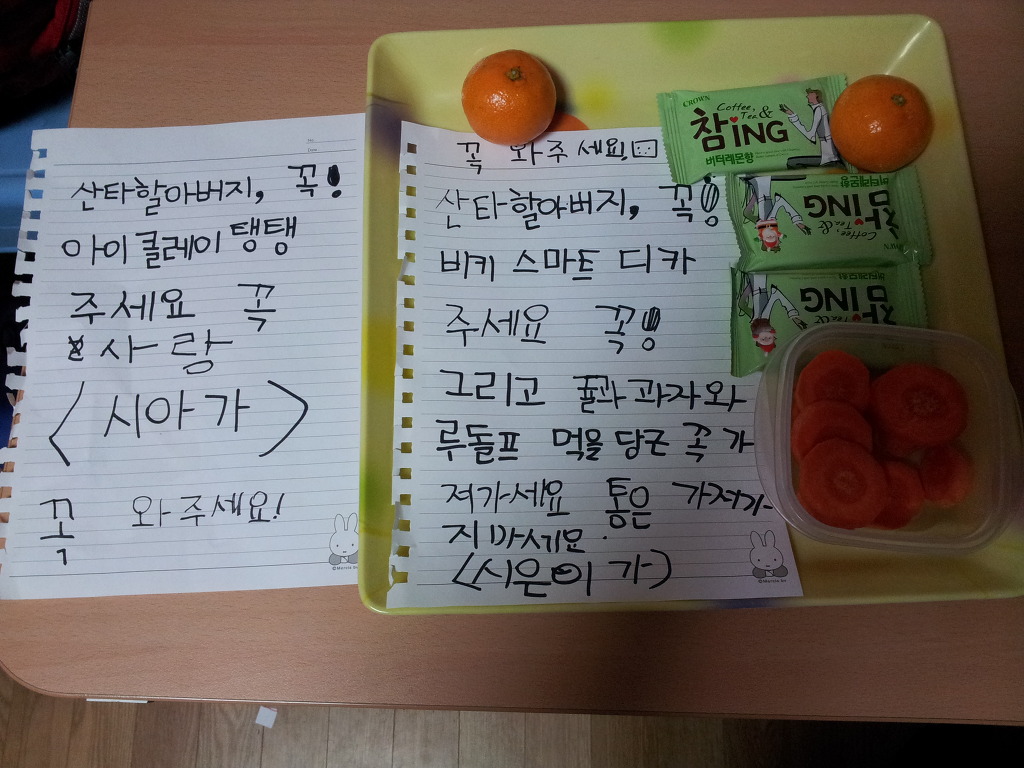 산타할아버지, 꼭!
아이클레이 탱탱
주세요 꼭
사랑
<시아가>
꼭 와주세요!
꼭 와주세요!
산타할아버지, 꼭!
비키 스마트 디카
주세요 꼭!
그리고 귤과 과자와
루돌프 먹을 당근 꼭 가
져가세요 통은 가져가
지마세요.
<시은이가>
CROWN
Coffee, Tea &
참ING
버터레몬향
Coffee, Tea &
참ING
CROWN
참ING